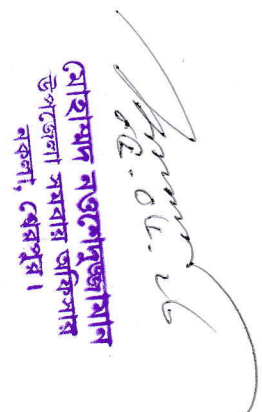 মোহাম্মদ নওশেদুজ্জামান
উপজেলা সমবায় অফিসার
নকলা, শেরপুর।